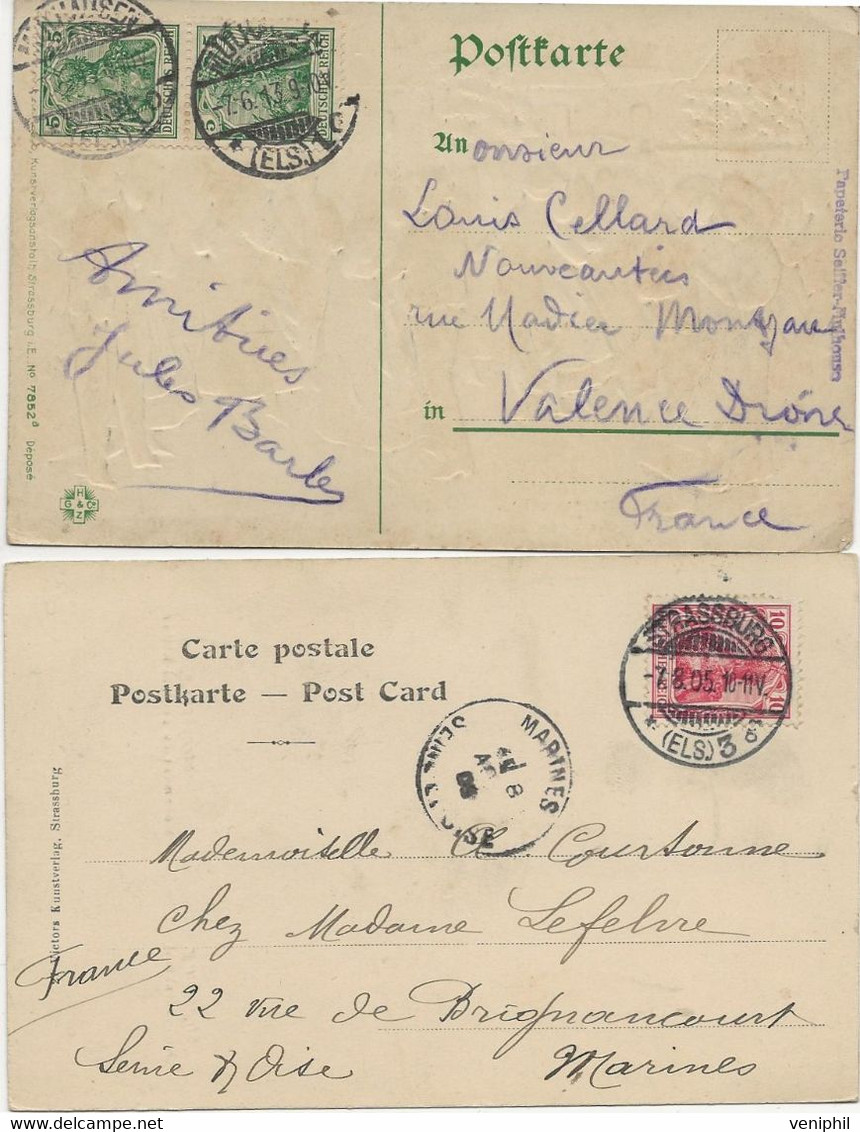 MÜLHAUSEN
(ELS.)
5 DEUTSCHES REICH 5
-7.6.13.9-10
* (ELS.) 1 c
Postkarte
An onsieur
Louis Cellard
Nouveautés
rue Madier Montjau
in Valence Drôme
France
Amitiés
Jules Barle
Papeterie Mulhouse
Kunstverlagsanstalt Strassburg i.E. No 7852 Déposé
H
G & Co
Z
Carte postale
Postkarte — Post Card
10
STRASSBURG
-7.8.05.10-11V.
* (ELS.) 3
MARINES
8
SEINE ET OISE
Kunstverlag, Strassburg
Mademoiselle Cl. Courtonne
chez Madame Lefebvre
France
22 rue de Brignancourt
Seine & Oise Marines
veniphil